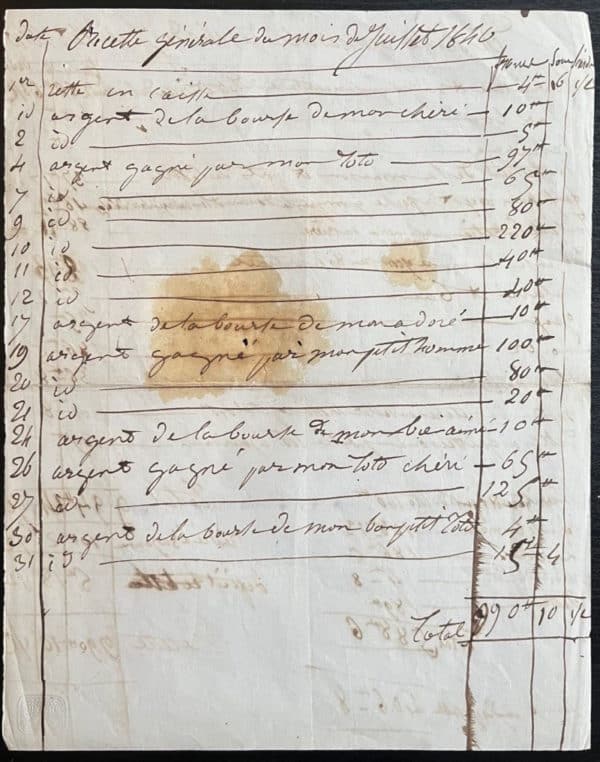 date Recette générale du mois de Juillet 1840
francs Sous
1er reste en caisse 4# 6 1/2
id argent de la bourse de mon chéri 10#
2 id 5#
4 argent gagné par mon Toto 97#
7 id 65#
9 id 80#
10 id 220#
11 id 40#
12 id 40#
17 argent de la bourse de mon adoré 10#
19 argent gagné par mon ptit homme 100#
20 id 80#
21 id 20#
24 argent de la bourse de mon bié aimé 10#
26 argent gagné par mon Toto chéri 65#
27 id 125#
30 argent de la bourse de mon bon ptit Toto 4#
31 id 15# 4
Total 990# 10 1/2